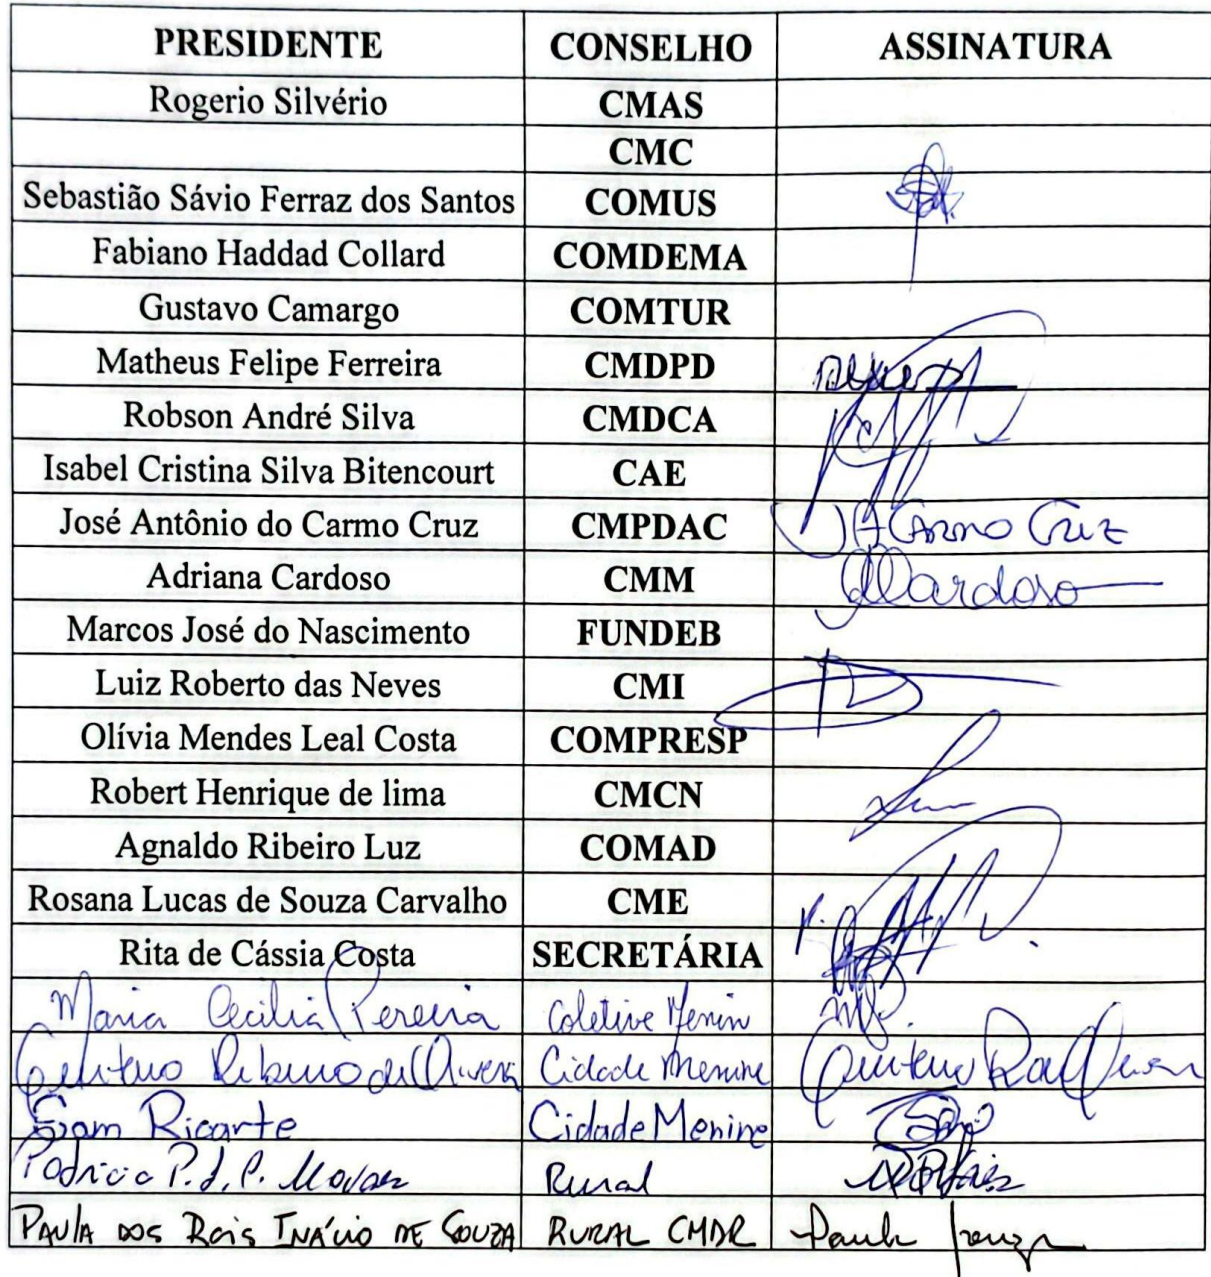 PRESIDENTE CONSELHO ASSINATURA
Rogerio Silvério CMAS
CMC
Sebastião Sávio Ferraz dos Santos COMUS
Fabiano Haddad Collard COMDEMA
Gustavo Camargo COMTUR
Matheus Felipe Ferreira CMDPD
Robson André Silva CMDCA
Isabel Cristina Silva Bitencourt CAE
José Antônio do Carmo Cruz CMPDAC JACARMO CRUZ
Adriana Cardoso CMM Cardoso
Marcos José do Nascimento FUNDEB
Luiz Roberto das Neves CMI
Olívia Mendes Leal Costa COMPRESP
Robert Henrique de lima CMCN
Agnaldo Ribeiro Luz COMAD
Rosana Lucas de Souza Carvalho CME
Rita de Cássia Costa SECRETÁRIA
Maria Cecilia Pereira
Cidade
Ricarte Cidade Menine
P. Rural
PAULA DOS Reis INÁCIO DE SOUZA RURAL CMDR Paula Souza